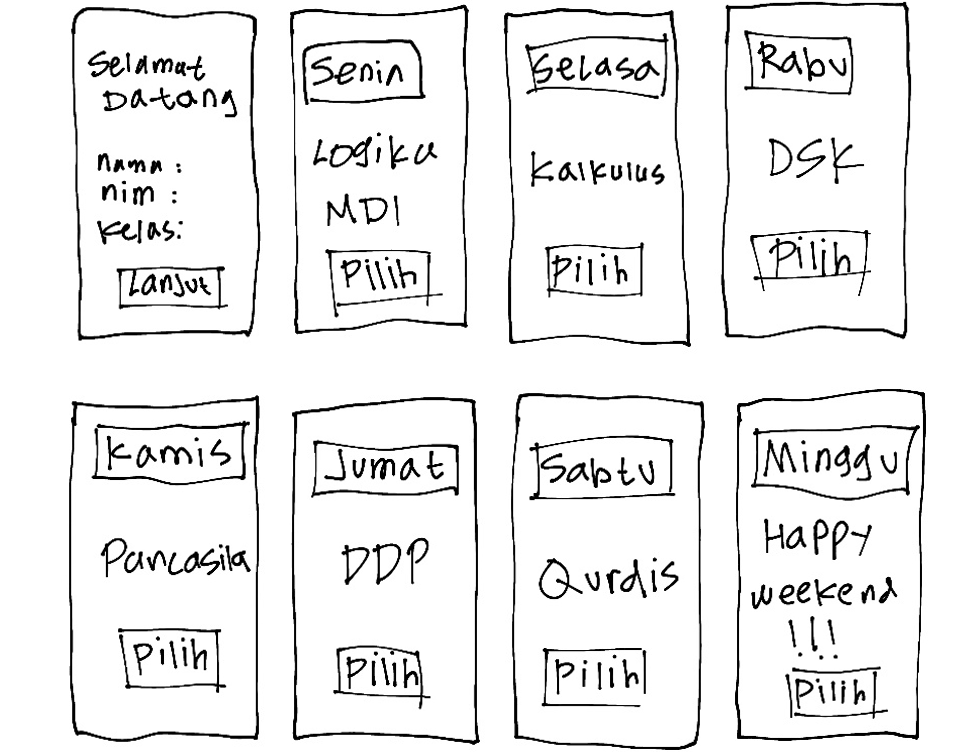 Selamat
Datang
nama :
nim :
Kelas:
Lanjut
Senin
Logika
MDI
Pilih
Selasa
Kalkulus
Pilih
Rabu
DSK
Pilih
Kamis
Pancasila
Pilih
Jumat
DDP
Pilih
Sabtu
Qurdis
Pilih
Minggu
Happy
weekend
!!!
Pilih